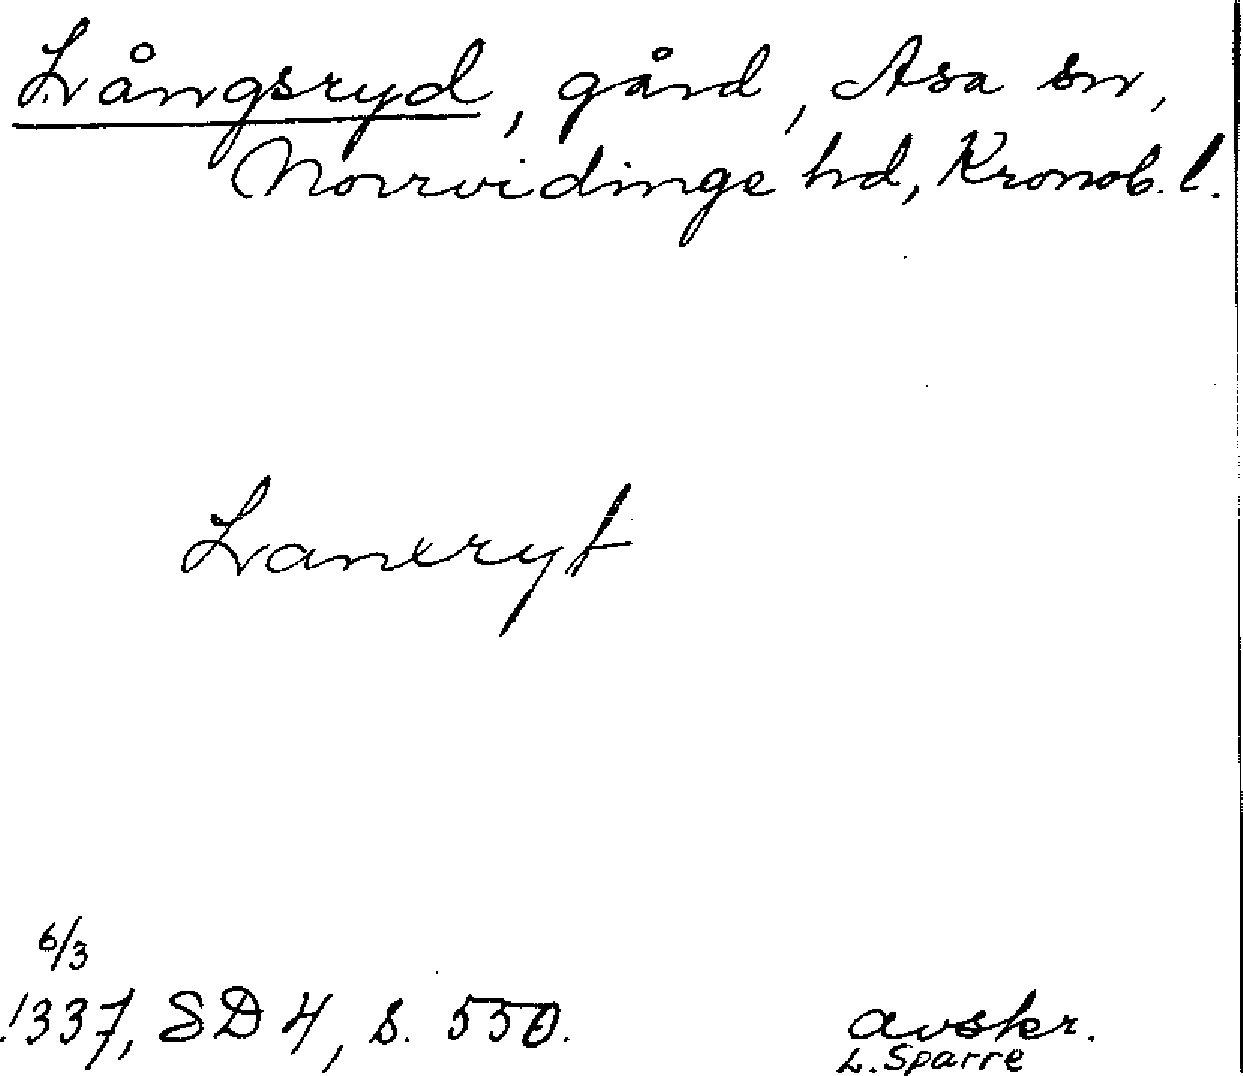 Långsryd, gård, Asa sn,
Norrvidinge hd, Kronob. l.
Lanxryt
6/3
1337, SD 4, s. 550.
avskr.
L. Sparre